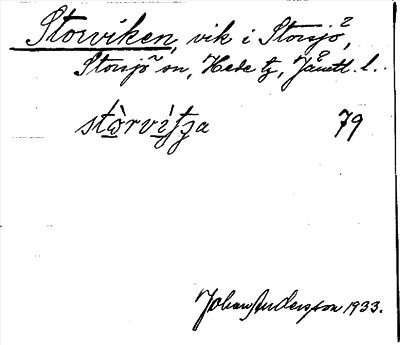 Storviken, vik i Storsjö,
Storsjö sn, Hede tg, Jämtl. l.
stò̱rvì̱tʒa 79
Johan Andersson 1933.